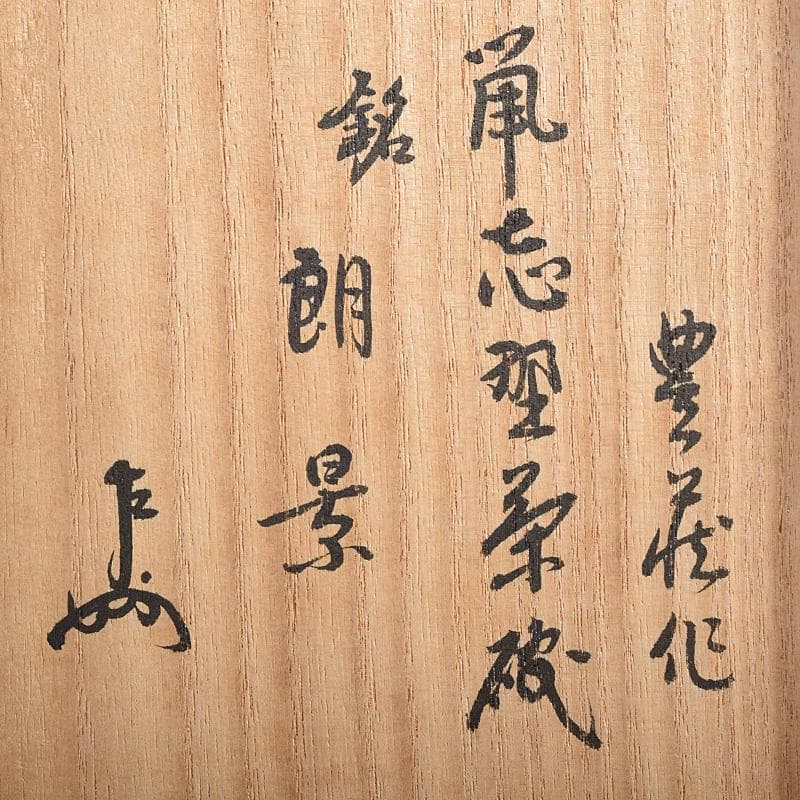 豊蔵作
鼠志野茶碗
銘 朗景